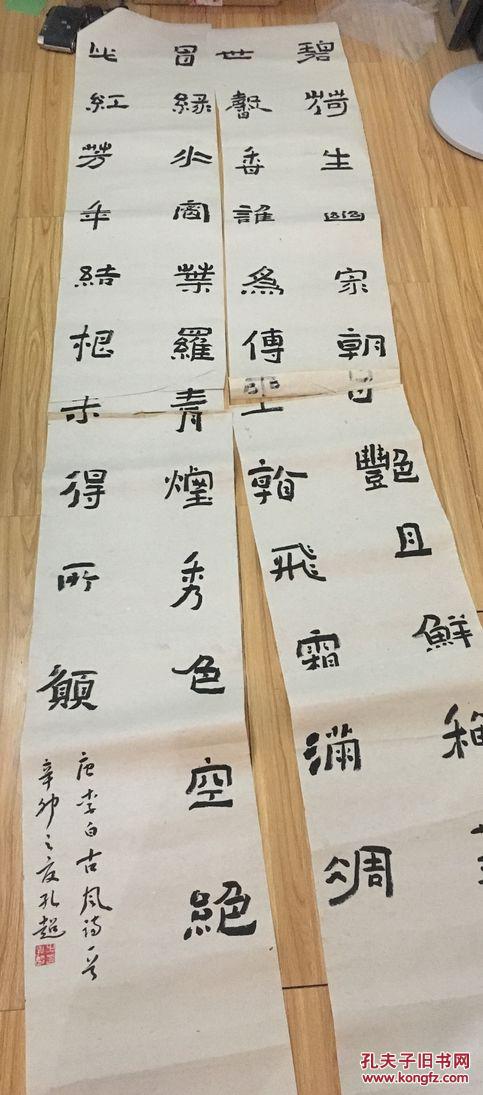 碧荷生幽家朝日豔且鮮秋
世馨香誰為傳坐看飛霜滿凋
冒綠水密葉羅青煙秀色空絕
此紅芳年結根未得所願
唐李白古風詩一首
辛卯之夏孔超
孔夫子旧书网
www.kongfz.com